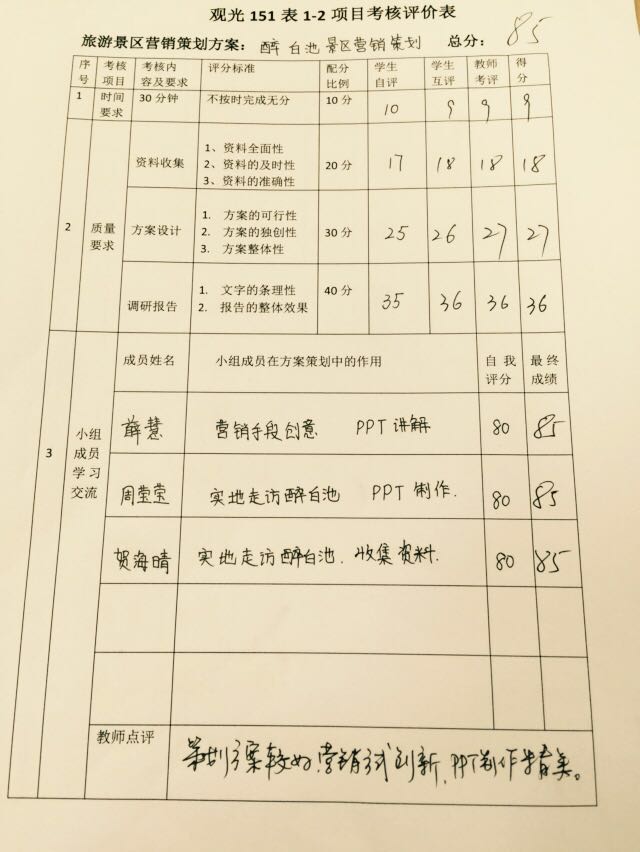 观光 151 表 1-2 项目考核评价表
旅游景区营销策划方案: 醉白池景区营销策划 总分: 85
序号 考核项目 考核内容及要求 评分标准 配分比例 学生自评 学生互评 教师考评 得分
1 时间要求 30分钟 不按时完成无分 10分 10 9 9 9
2 质量要求
资料收集 1、资料全面性 2、资料的及时性 3、资料的准确性 20分 17 18 18 18
方案设计 1. 方案的可行性 2. 方案的独创性 3. 方案整体性 30分 25 26 27 27
调研报告 1. 文字的条理性 2. 报告的整体效果 40分 35 36 36 36
3 小组成员学习交流
成员姓名 小组成员在方案策划中的作用 自我评分 最终成绩
薛慧 营销手段创意 PPT讲解 80 85
周莹莹 实地走访醉白池 PPT制作. 80 85
贺海晴 实地走访醉白池. 收集资料. 80 85
教师点评 策划方案较好,营销方式创新,PPT制作精美。